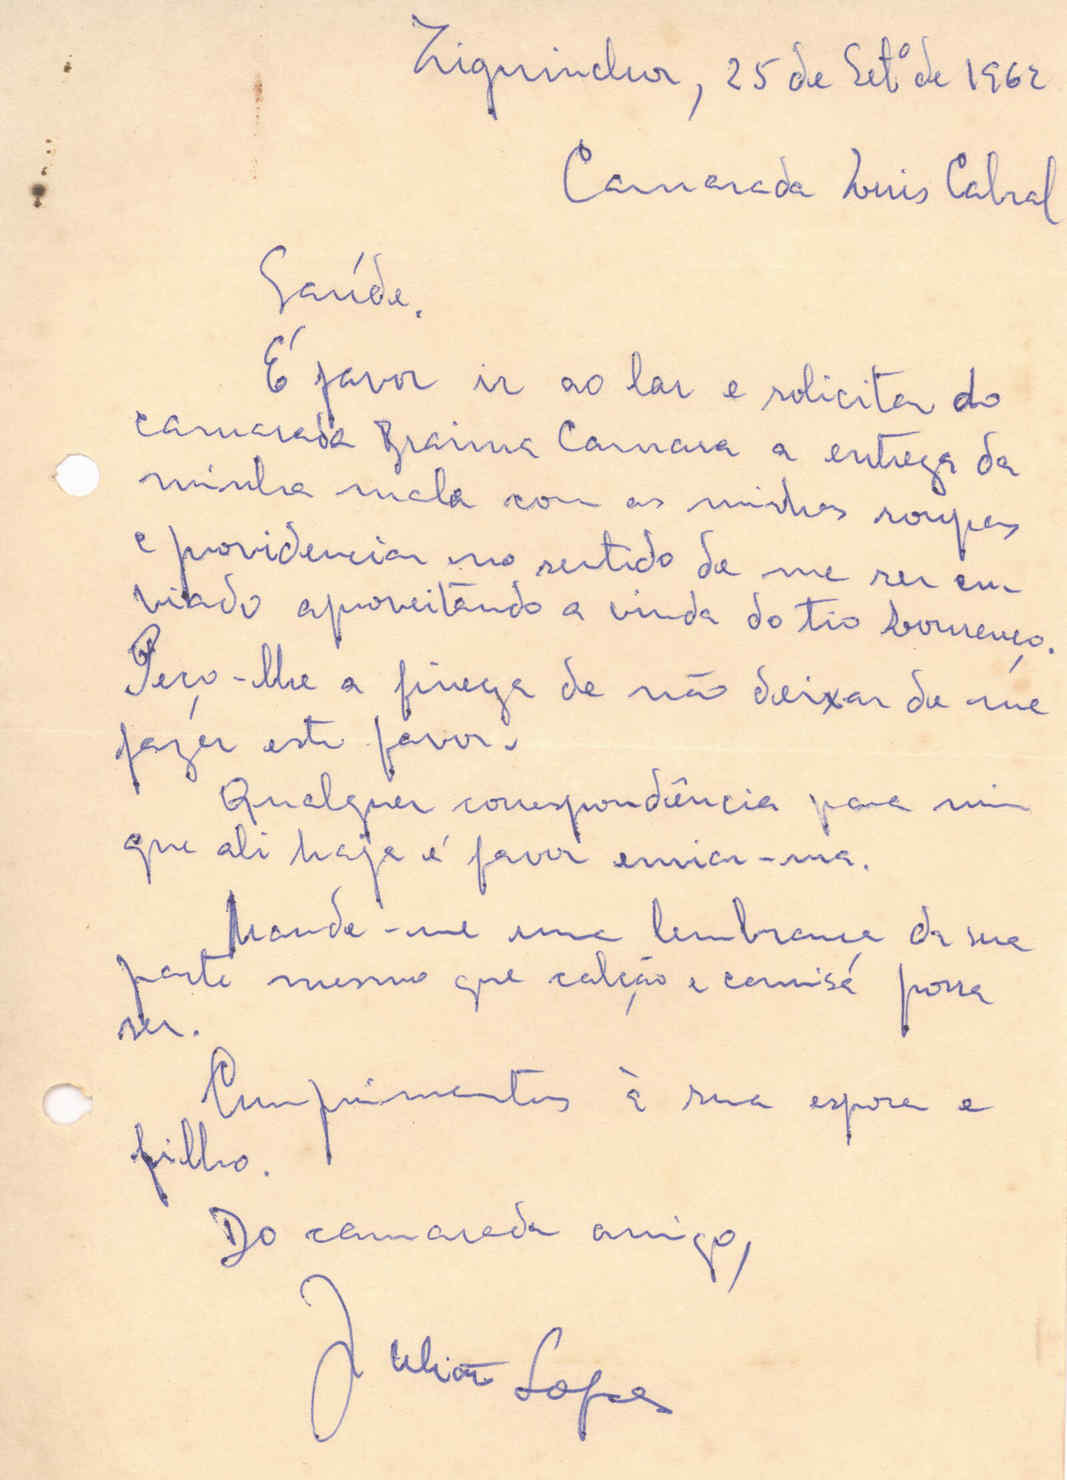 Ziguinchor, 25 de Setº de 1962
Camarada Luis Cabral
Saúde.
É favor ir ao lar e solicitar do
camarada Braima Camara a entrega da
minha mala com as minhas roupas
e providenciar no sentido de me ser en-
viado aproveitando a vinda do tio Lourenço.
Peço-lhe a fineza de não deixar de me
fazer este favor.
Qualquer correspondência para mim
que ali haja é favor enviar-ma.
Mande-me uma lembrança da sua
parte mesmo que calção e camisa possa
ser.
Cumprimentos à sua esposa e
filho.
Do camarada amigo,
Julião Lopes